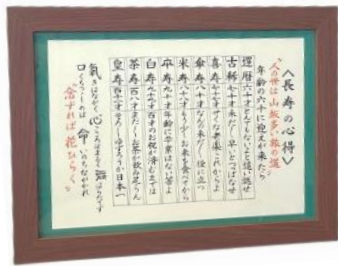 〈長寿の心得〉
“人の世は山坂多い旅の道
年齢の六十に迎えが来たら
還暦 六十才 とんでもないよと追い返せ
古稀 七十才 未だ早いとつっぱなせ
喜寿 七十七才 せくな老楽これからよ
傘寿 八十才 なんの未だ役に立つ
米寿 八十八才 もう少しお米を食べてから
卒寿 九十才 年齢に卒業はない筈よ
白寿 九十九才 百才のお祝が済むまでは
茶寿 百八才 まだお茶が飲み足らん
皇寿 百十一才 そろそろゆずろうか日本一
気はながく 心はまるく 腹たてず
口をつつしめば 命ながかれ
“含ずれば花ひらく”